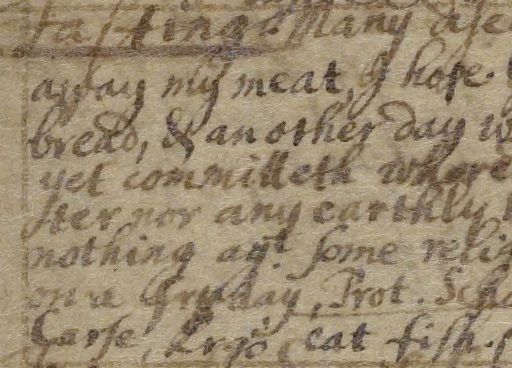 fasting. Many
away my meat, I hope.
bread, & another day
yet committeth where
ster nor any earthly
nothing agt some reli
on a Fryday, Prot. Scho
Carse, Ergo eat fish.